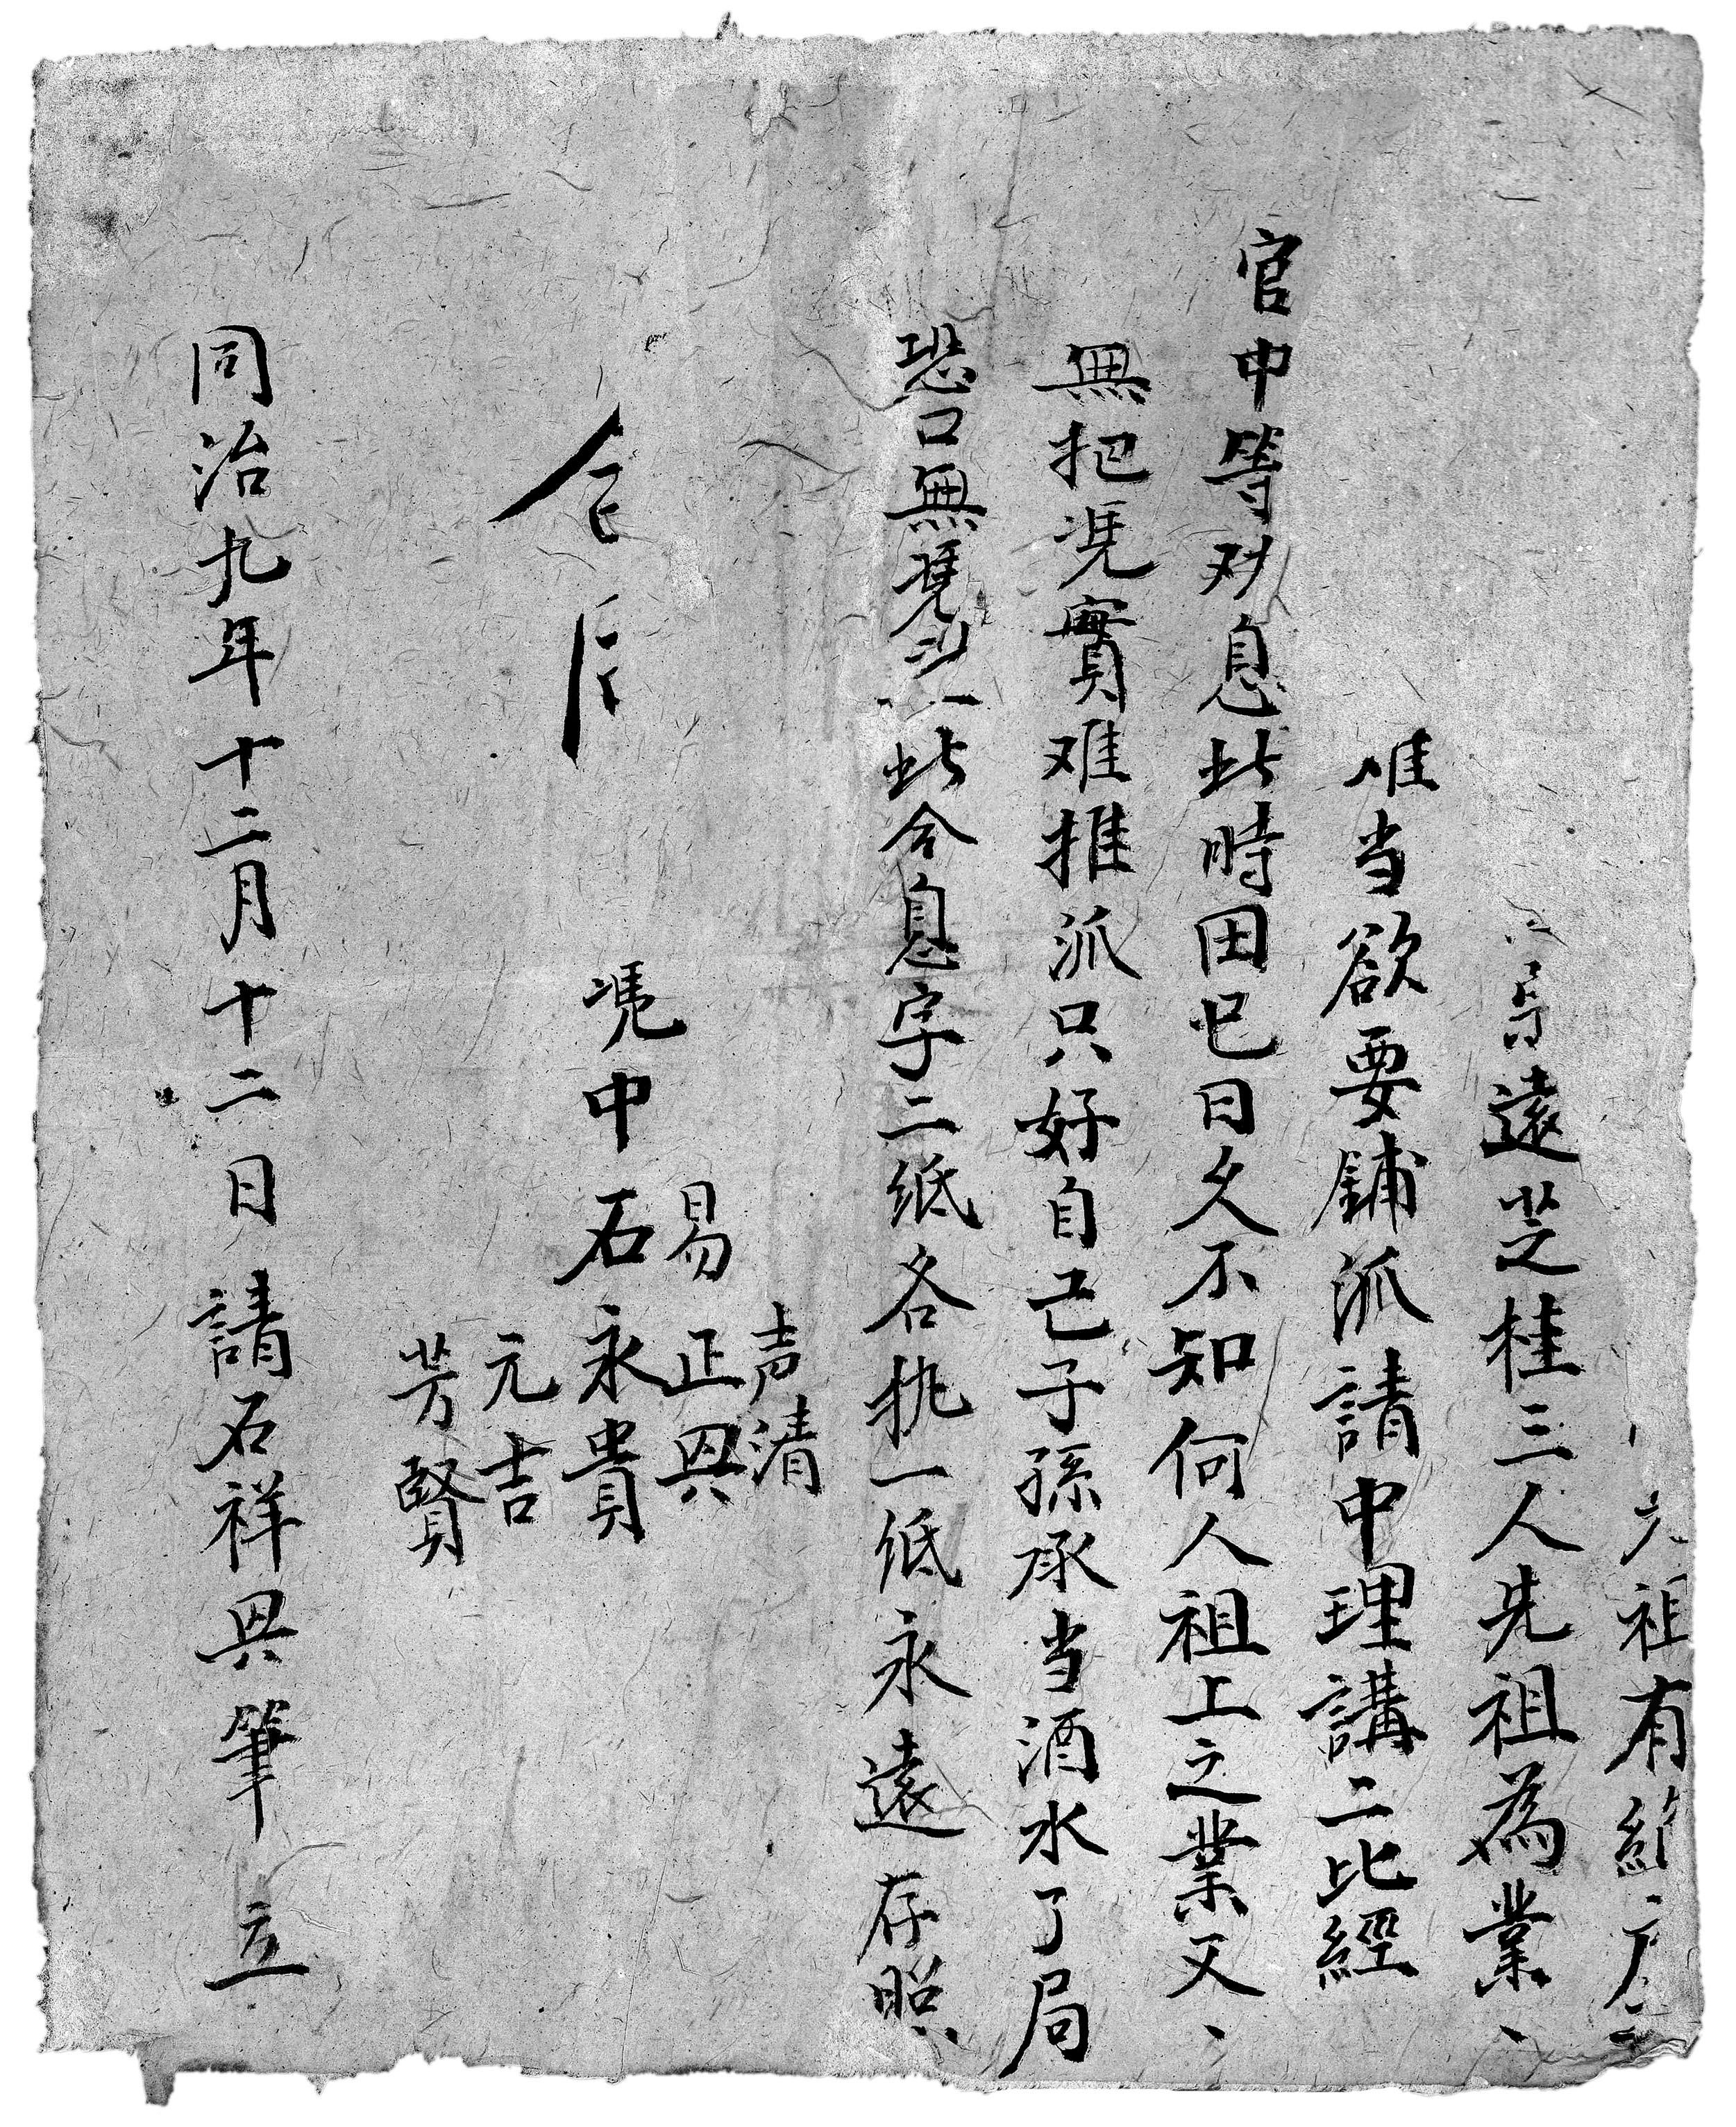 祖有
遠芝桂三人先祖為業
难当欲要鋪派請中理講二比經
官中等劝息此時田已日久不知何人祖上之業又
無把凴實难推派只好自己子孫承当酒水了局
恐口無凴立此合息字二紙各执一紙永遠存照
声清
易正興
凴中石永貴
元吉
芳賢
同治九年十二月十二日請石祥興筆立